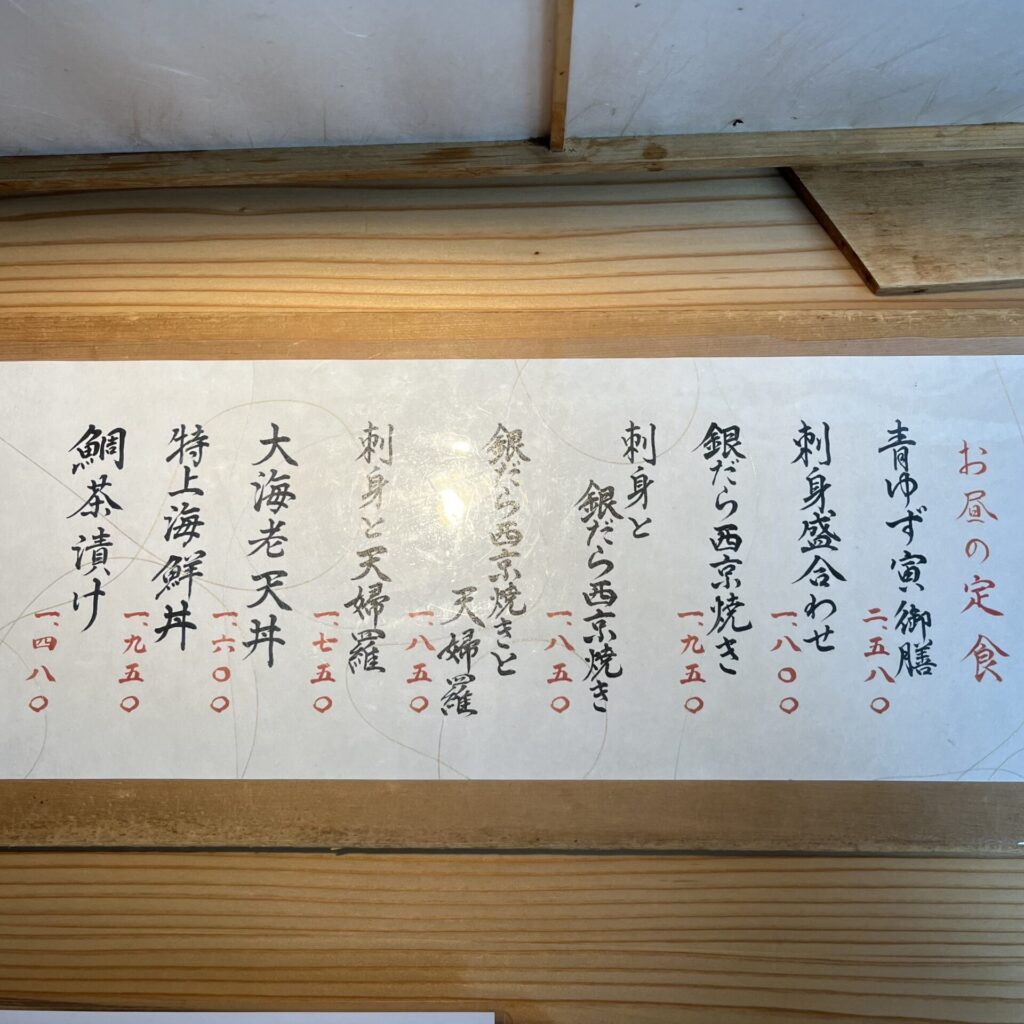 お昼の定食
青ゆず寅御膳
二、五八〇
刺身盛合わせ
一、八〇〇
銀だら西京焼き
一、九五〇
刺身と
銀だら西京焼き
一、八五〇
銀だら西京焼きと
天婦羅
一、八五〇
刺身と天婦羅
一、七五〇
大海老天丼
一、六〇〇
特上海鮮丼
一、九五〇
鯛茶漬け
一、四八〇